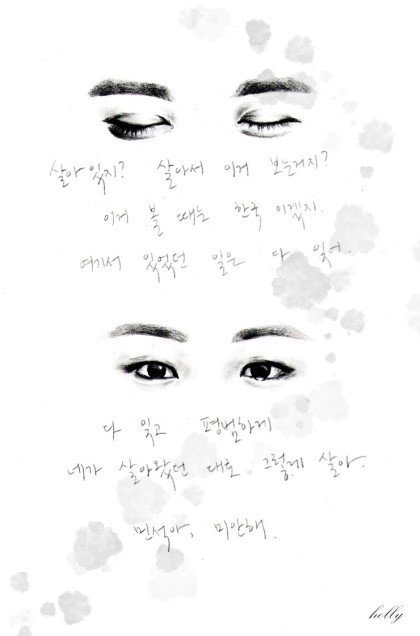 살아있지? 살아서 이거 보는거지?
이거 볼 때는 한국 이겠지.
여기서 있었던 일은 다 잊어.
다 잊고 평범하게
네가 살아왔던 대로 그렇게 살아.
민석아, 미안해.
holly